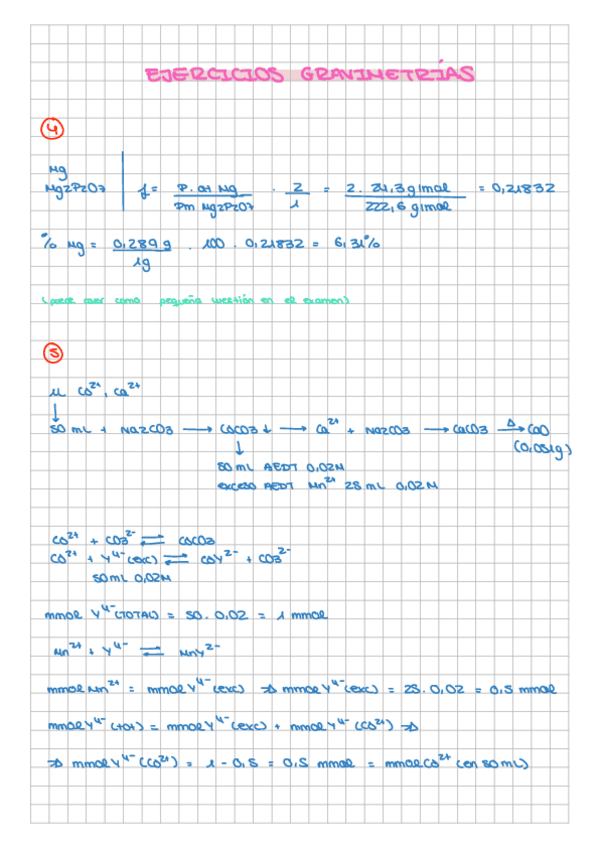 EJERCICIOS GRAVIMETRÍAS
4
Mg
Mg2P2O7 | f = P. at Mg / Pm Mg2P2O7 · 2/1 = 2 · 24,3 g/mol / 222,6 g/mol = 0,21832
% Mg = 0,289 g / 1g · 100 · 0,21832 = 6,31%
(puede caer como pequeña cuestión en el examen)
5
M Co²⁺, Ca²⁺
↓
50 mL + Na2CO3 → CoCO3 ↓ → Ca²⁺ + Na2CO3 → CaCO3 →Δ CaO
(0,051g)
↓
50 mL AEDT 0,02M
exceso AEDT Mn²⁺ 25 mL 0,02M
Co²⁺ + CO3²⁻ ⇌ CoCO3
Co²⁺ + Y⁴⁻(exc) ⇌ CoY²⁻ + CO3²⁻
50 mL 0,02M
mmol Y⁴⁻(TOTAL) = 50 · 0,02 = 1 mmol
Mn²⁺ + Y⁴⁻ ⇌ MnY²⁻
mmol Mn²⁺ = mmol Y⁴⁻(exc) ⇒ mmol Y⁴⁻(exc) = 25 · 0,02 = 0,5 mmol
mmol Y⁴⁻(tot) = mmol Y⁴⁻(exc) + mmol Y⁴⁻(Co²⁺) ⇒
⇒ mmol Y⁴⁻(Co²⁺) = 1 - 0,5 = 0,5 mmol = mmol Co²⁺ (en 50 mL)